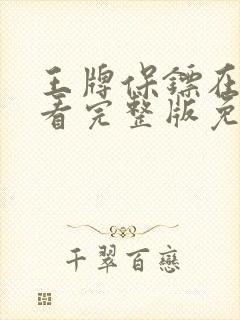 王牌保镖在
看完整版免
千翠百戀